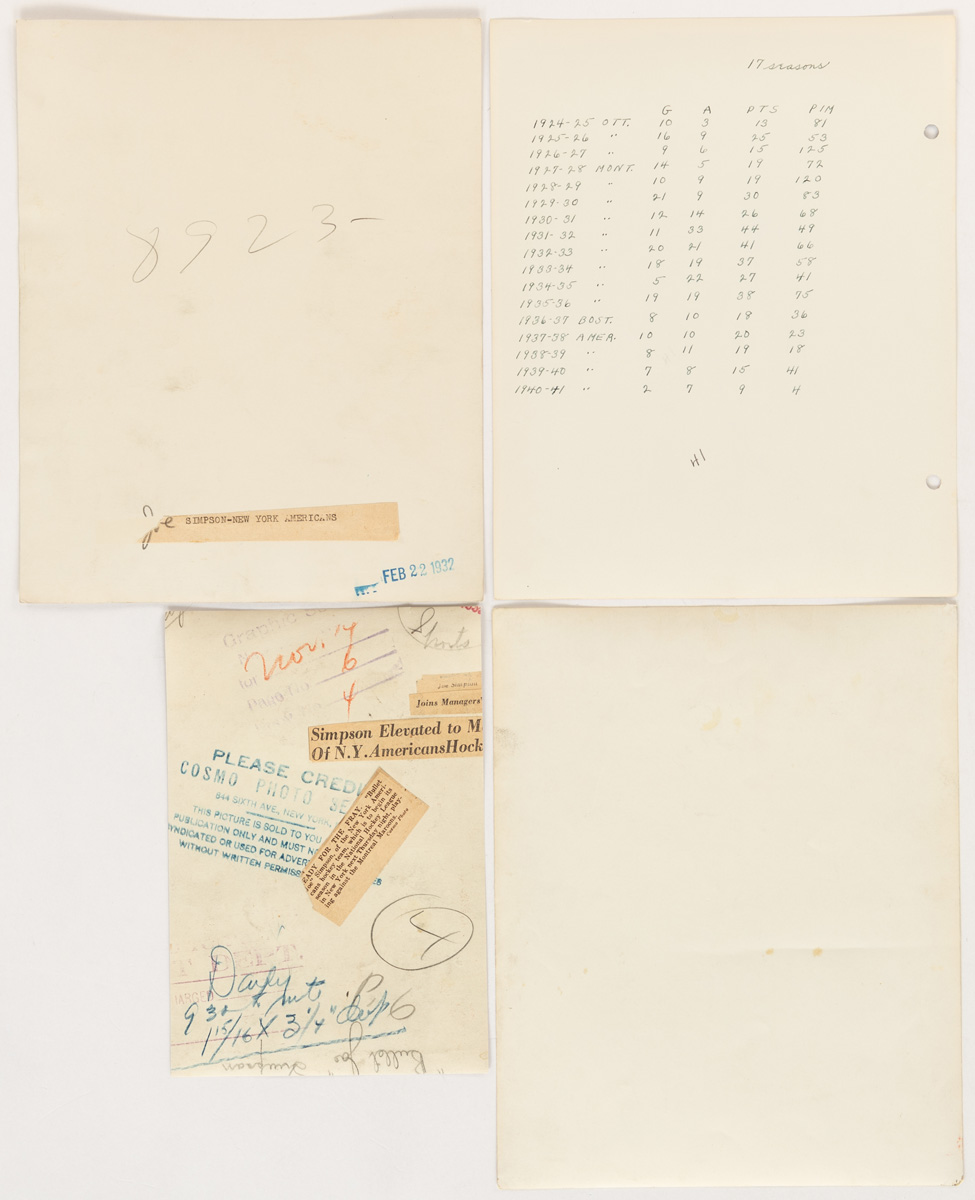 8923-
Joe SIMPSON-NEW YORK AMERICANS
FEB 22 1932
17 seasons
G A PTS PIM
1924-25 OTT. 10 3 13 81
1925-26 " 16 9 25 53
1926-27 " 9 6 15 125
1927-28 MONT. 14 5 19 72
1928-29 " 10 9 19 120
1929-30 " 21 9 30 83
1930-31 " 12 14 26 68
1931-32 " 11 33 44 49
1932-33 " 20 21 41 66
1933-34 " 18 19 37 58
1934-35 " 5 22 27 41
1935-36 " 19 19 38 75
1936-37 BOST. 8 10 18 36
1937-38 AMER. 10 10 20 23
1938-39 " 8 11 19 18
1939-40 " 7 8 15 41
1940-41 " 2 7 9 4
41
Graphic
Nov. 7
6
4
Sports
Joe Simpson
Joins Managers'
Simpson Elevated to M
Of N.Y. Americans Hock
PLEASE CREDI
COSMO PHOTO SE
644 SIXTH AVE., NEW YORK,
THIS PICTURE IS SOLD TO YOU
PUBLICATION ONLY AND MUST NO
SYNDICATED OR USED FOR ADVER
WITHOUT WRITTEN PERMISS
EADY FOR THE FRAY. "Bullet
Joe" Simpson, of the New York Ameri-
cans hockey team, which is to begin its
season in the National Hockey League
in New York next Thursday night, play-
ing against the Montreal Maroons.
Cosmo Photo
T DEPT.
Daily
9 30
1 15/16 X 3 1/4"
P6
"Bullet Joe" Simpson